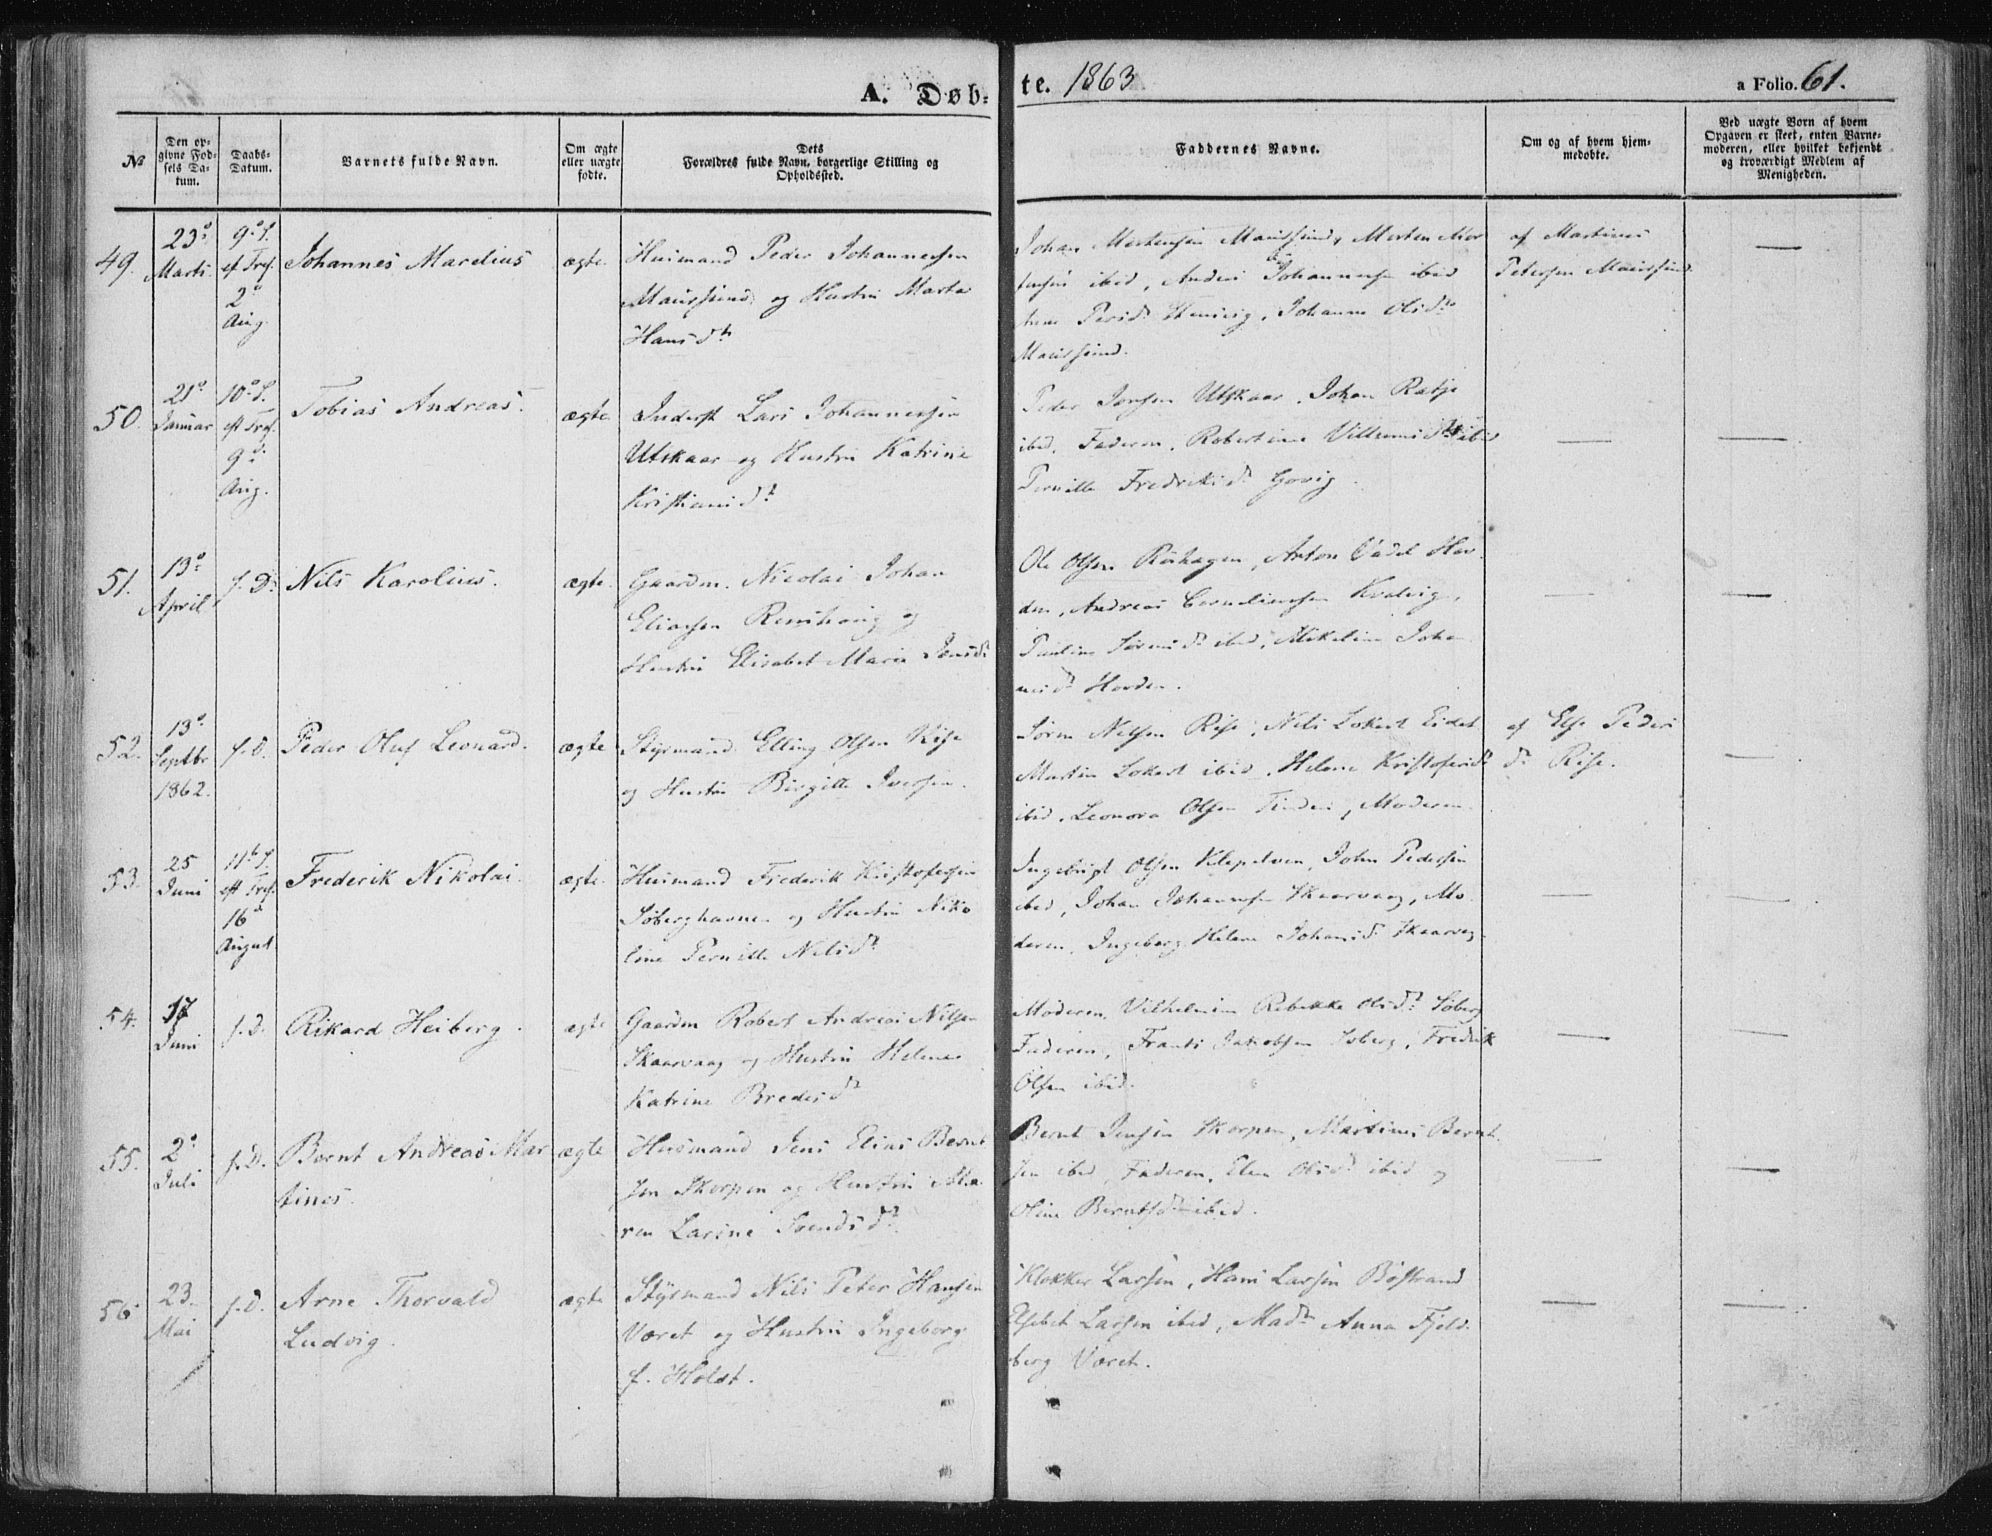 A. Døb-
te. 1863
a Folio. 61.
No
Den op-
givne Fød-
sels Da-
tum.
Daabs-
Datum.
Barnets fulde Navn.
Om ægte
eller uægte
fødte.
Dets
Forældres fulde Navn, borgerlige Stilling og
Opholdssted.
Faddernes Navne.
Om og af hvem hjem-
medøbte.
Ved uægte Børn af hvem
Opgaven er skeet, enten Barne-
moderen, eller hvilket bekjendt
og troværdigt Medlem af
Menigheden.
49.
23.
Marti
9. S.
ef. Tref.
2.
Aug.
Johannes Marelius
ægte
Huusmand Peder Johannessen
Maursund og Hustru Marta
Hansdr
Johan Mortensen Maursund, Morten Mor
tensen ibid, Anders Johannessen ibid
Persdr Johanna Olsdr
Maursund.
af Martinus
Petersen Maursund
50.
21.
Januar
10. S.
eft Tref.
9.
Aug.
Tobias Andreas.
ægte
Inderst Lars Johannessen
Utskaar og Hustru Katrine
Kristiansdr
Peder Jensen Utskaar, Johan Ratje
ibid, Faderen, Robertine Villumsdr ibid
Pernille Fredriksdr Govig.
51.
13.
April
s. D.
Nils Karolius.
ægte.
Gaardm. Nicolai Johan
Eliassen Remshaug og
Hustru Elisabet Maria Jensdr
Ole Olsen Anton Hov
den, Andreas Corneliussen Kvalvig,
Pauline Sørensdr ibid, Mikeline Johan
nesdr Hovden.
52.
13.
Septbr
1862.
s. D.
Peder Oluf Leonard.
ægte
Styrmand Elling Olsen Rise
og Hustru Birgitte Iversen.
Søren Nilsen Rise, Nils Lokert Eidet
Martin Lokert ibid, Helene Kristofersdr
ibid, Leonora Olsen Moderen.
af Else Peders
dr Rise.
53.
25
Juni
11te S.
eft Tref.
16
August
Frederik Nikolai.
ægte.
Huusmand Frederik Kristofersen
Søberghavne og Hustru Niko
line Pernille Nilsdr
Ingebrigt Olsen John Pedersen
ibid, Johan Johannesen Skaarvaag, Mo
deren, Ingeborg Helene Johansdr Skaarvag
54.
17
Juni
s. D.
Rikard Heiberg.
ægte
Gaardm Robert Andreas Nilsen
Skaarvaag og Hustru Helene
Katrine Bredesdr
Moderen, Vilhelmine Rebekke Olsdr Søberg
Faderen, Frants Jakobsen Søberg, Fredrik
Olsen ibid.
55.
2.
Juli
s. D.
Bernt Andreas Mar
tinus.
ægte
Huusmand Jens Elias Bernt
sen Skorpen og Hustru Ma
ren Larine Svendsdr
Bernt Jensen Skorpen, Martinus Bernt
sen ibid, Faderen, Elen Olsdr ibid og
Oline Berntsdr ibid.
56.
23.
Mai
s. D.
Arne Thorvald
Ludvig.
ægte
Styrmand Nils Peter Hansen
Været og Hustru Ingeborg
f. Holst.
Klokker Larsen, Hans Larsen Bøstrand
Elsebet Larsen ibid, Madm Anna Fjeld
berg Været.